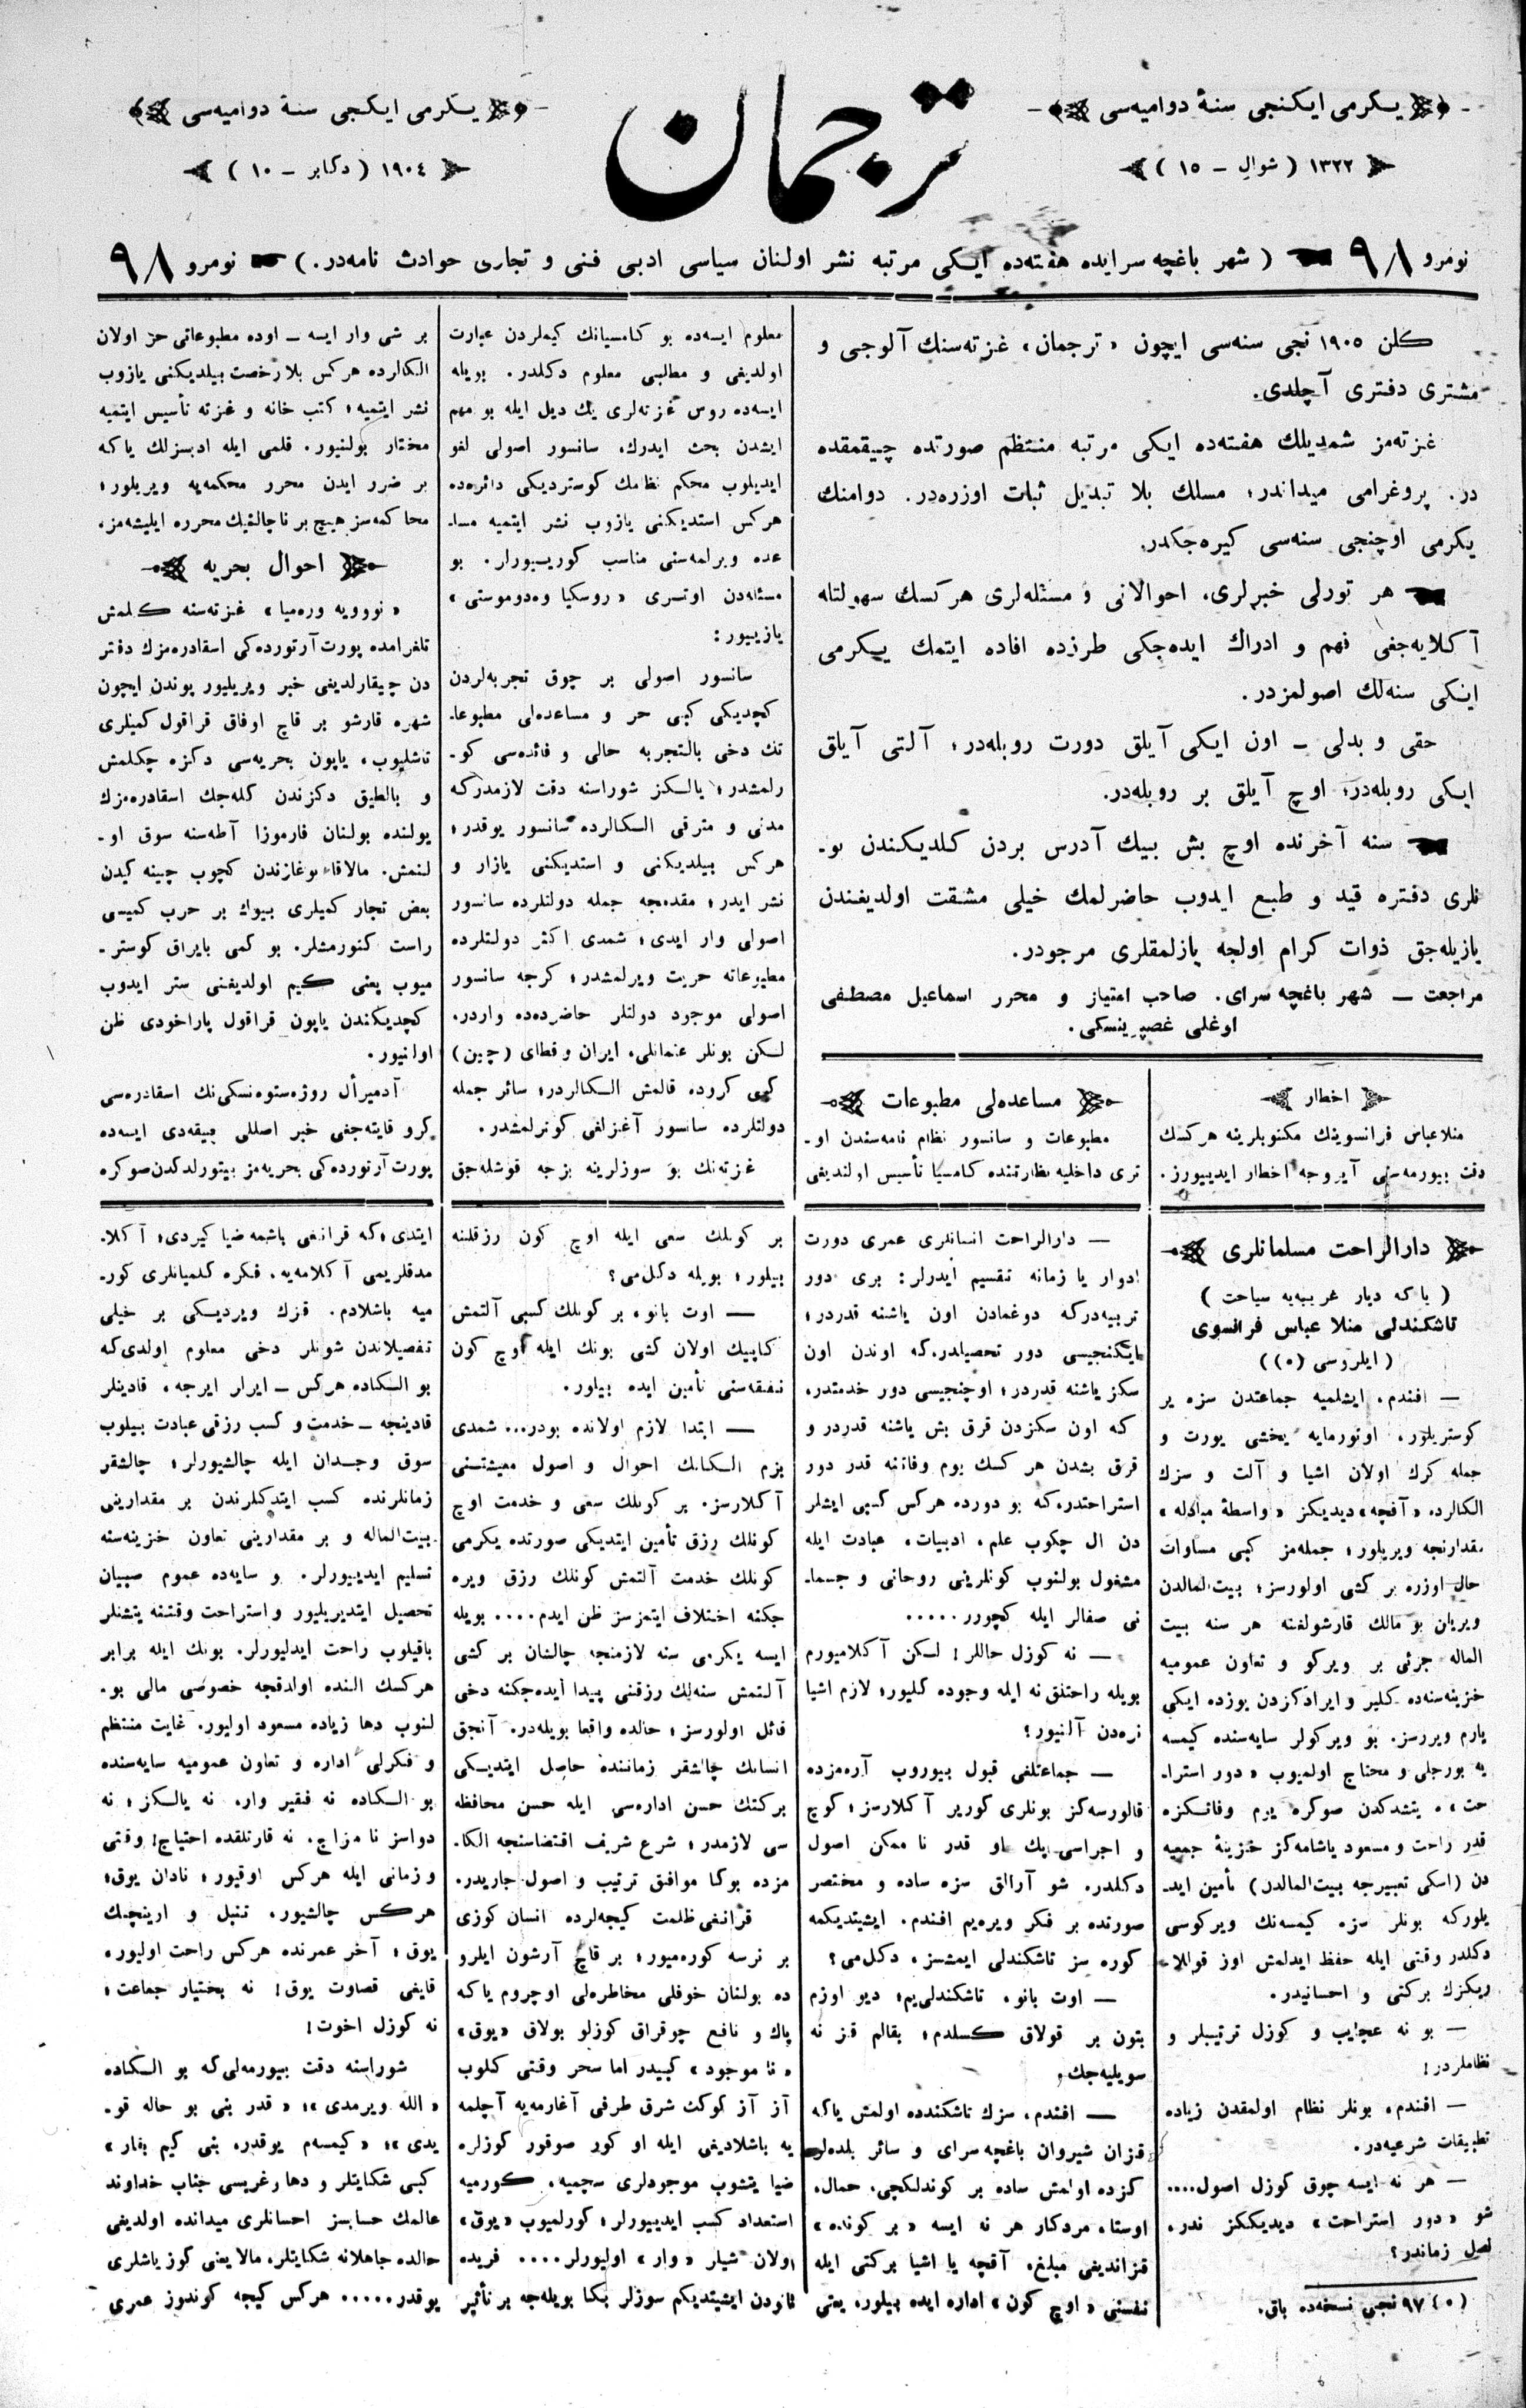 يكرمى ايكنجى سنۀ دواميه‌سى
١٣٢٢ ( شوال - ١٥ )
ترجمان
يكرمى ايكنجى سنۀ دواميه‌سى
١٩٠٤ ( دكابر - ١٠ )
نومرو ٩٨ ( شهر باغچه سرايده هفته‌ده ايكى مرتبه نشر اولنان سياسى ادبى فنى و تجارى حوادث نامه‌در. ) نومرو ٩٨
كلن ١٩٠٥ نجى سنه‌سى ايچون «ترجمان» غزته‌سنك آلوجى و
مشترى دفترى آچلدى.
غزته‌مز شمديلك هفته‌ده ايكى مرتبه منتظم صورتده چيقمقده
در. پروغرامى ميداندر؛ مسلك بلا تبديل ثبات اوزره‌در. دوامنك
يكرمى اوچنجى سنه‌سى كيره‌جكدر.
هر تورلى خبرلرى، احوالاتى و مسئله‌لرى هركسك سهولتله
آكلايه‌جغى فهم و ادراك ايده‌جكى طرزده افاده ايتمك يكرمى
ايكى سنه‌لك اصولمزدر.
حقى و بدلى - اون ايكى آيلق دورت روبله‌در؛ آلتى آيلق
ايكى روبله‌در؛ اوچ آيلق بر روبله‌در.
سنه آخرنده اوچ بش بيك آدرس بردن كلديكندن بو-
نلرى دفتره قيد و طبع ايدوب حاضرلمك خيلى مشقت اولديغندن
يازيله‌جق ذوات كرام اولجه يازلمقلرى مرجودر.
مراجعت — شهر باغچه سراى. صاحب امتياز و محرر اسماعيل مصطفى
اوغلى غصپرينسكى.
اخطار
منلا عباس فرانسوينك مكتوبلرينه هركسك
دقت بيورمه‌سنى آيروجه اخطار ايدييورز.
مساعده‌لى مطبوعات
مطبوعات و سانسور نظام نامه‌سندن او-
ترى داخليه نظارتنده كامسيا تأسيس اولنديغى
معلوم ايسه‌ده بو كامسيانك كيملردن عبارت
اولديغى و مطالبى معلوم دكلدر. بويله
ايسه‌ده روس غزته‌لرى يك ديل ايله بو مهم
ايشدن بحث ايدرك، سانسور اصولى لغو
ايديلوب محكم نظامك كوسترديكى دائره‌ده
هركس استديكنى يازوب نشر ايتميه مسا-
عده ويرلمه‌سنى مناسب كوريييورلر. بو
مسئله‌دن اوترى «روسكيا وه‌دوموستى»
يازييور:
سانسور اصولى بر چوق تجربه‌لردن
كچديكى كبى حر و مساعده‌لى مطبوعا-
تك دخى بالتجربه حالى و فائده‌سى كو-
رلمشدر؛ يالكز شوراسنه دقت لازمدركه
مدنى و مترقى الكالرده سانسور يوقدر؛
هركس بيلديكنى و استديكنى يازار و
نشر ايدر؛ مقدمجه جمله دولتلرده سانسور
اصولى وار ايدى؛ شمدى اكثر دولتلرده
مطبوعاته حريت ويرلمشدر؛ كرچه سانسور
اصولى موجود دولتلر حاضرده‌ده واردر.
لكن بونلر عثمانلى، ايران و قطاى (چين)
كبى كروده قالمش الكالردر؛ سائر جمله
دولتلرده سانسور آغزلغى كوترلمشدر.
غزته‌نك بو سوزلرينه بزجه قوشله‌جق
بر شى وار ايسه - اوده مطبوعاتى حر اولان
الكالرده هركس بلا رخصت بيلديكنى يازوب
نشر ايتميه؛ كتب خانه و غزته تأسيس ايتميه
مختار بولنيور. قلمى ايله ادبسزلك ياكه
بر ضرر ايدن محرر محكمه‌يه ويريلور؛
محاكمه‌سز هيچ بر ناچالنيك محرره ايليشه‌مز.
احوال بحريه
«نوويه وره‌ميا» غزته‌سنه كلمش
تلغرامده پورت آرتورده‌كى اسقادره‌مزك دفتر
دن چيقارلديغى خبر ويريليور بوندن ايچون
شهره قارشو بر قاچ اوفاق قراقول كميلرى
تاشليوب، ياپون بحريه‌سى دكزه چكلمش
و بالطيق دكزندن كلمه‌جك اسقادره‌مزك
يولنده بولنان فارموزا آطه‌سنه سوق او-
لنمش. مالاقا بوغازندن كچوب چينه كيدن
بعض تجار كميلرى بيوك بر حرب كميسى
راست كتورمشلر. بو كمى بايراق كوستر-
ميوب يعنى كيم اولديغنى ستر ايدوب
كچديكندن ياپون قراقول پاراخودى ظن
اولنيور.
آدميرال روژه‌ستوه‌نسكى‌نك اسقادره‌سى
كرو قايته‌جغى خبر اصللى چيقه‌دى ايسه‌ده
پورت آرتورده‌كى بحريه‌مز بيتورلدكدن صوكره
دارالراحت مسلمانلرى
( ياكه ديار غريبه‌يه سياحت )
تاشكندلى منلا عباس فرانسوى
( ايلروسى (٥))
— افندم، ايشلميه جماعتدن سزه ير
كوستريلور، اوتورمايه يخشى يورت و
جمله كرك اولان اشيا و آلت و سزك
الكالرده «آقچه» ديديكز «واسطۀ مبادله»
مقدارنجه ويريلور؛ جمله‌مز كبى مساوات
حال اوزره بر كشى اولورسز؛ بيت‌المالدن
ويريان بو مالك قارشولغنه هر سنه بيت
الماله جزئى بر ويركو و تعاون عموميه
خزينه‌سنه‌ده كلير و ايرادكزدن يوزده ايكى
يارم ويررسز. بو ويركولر سايه‌سنده كيمسه
يه بورجلى و محتاج اولميوب «دور استرا-
حت»ه يتشدكدن صوكره يوم وفاتكزه
قدر راحت و مسعود ياشامه‌كز خزينۀ جمعيه
دن (اسكى تعبيرجه بيت‌المالدن) تأمين ايد-
يلوركه بونلر سزه كيمسه‌نك ويركوسى
دكلدر وقتى ايله حفظ ايدلمش اوز قوللا-
ريكزك بركتى و احسانيدر.
— بو نه عجايب و كوزل ترتيبلر و
نظاملردر!
— افندم، بونلر نظام اولمقدن زياده
تطبيقات شرعيه‌در.
— هر نه ايسه چوق كوزل اصول....
شو «دور استراحت» ديديككز ندر.
نصل زماندر؟
(٥) ٩٧ نجى نسخه‌ده باق.
— دارالراحت انسانلرى عمرى دورت
ادوار يا زمانه تقسيم ايدرلر: برى دور
تربيه‌دركه دوغمادن اون ياشنه قدردر؛
ايكنجيسى دور تحصيلدر.كه اوندن اون
سكز ياشنه قدردر؛ اوچنجيسى دور خدمتدر،
كه اون سكزدن قرق بش ياشنه قدردر و
قرق بشدن هركسك يوم وفاتنه قدر دور
استراحتدر،كه بو دورده هركس كسبى ايشلر
دن ال چكوب علم، ادبيات، عبادت ايله
مشغول بولنوب كونلرينى روحانى و جسما-
نى صفالر ايله كچورر.....
— نه كوزل حاللر! لكن آكلاميورم
بويله راحتلق نه ايله وجوده كليور؛ لازم اشيا
نره‌دن آلنيور؟
— جماعتلغى قبول بيوروب آره‌مزده
قالورسه‌كز بونلرى كورير آكلارسز؛ كوچ
و اجراسى يك او قدر نا ممكن اصول
دكلدر. شو آرالق سزه ساده و مختصر
صورتده بر فكر ويره‌يم افندم. ايشيتديكمه
كوره سز تاشكندلى ايمشسز، دكل‌مى؟
— اوت بانو، تاشكندلى‌يم؛ ديو اوزم
بتون بر قولاق كسلدم؛ بقالم قز نه
سويليه‌جك.
— افندم، سزك تاشكندده اولمش ياكه
قزان شيروان باغچه سراى و سائر بلده‌لر
كزده اولمش ساده بر كوندلكچى، حمال،
اوستا، مردكار هر نه ايسه «بر كونده»
قزانديغى مبلغ، آقچه يا اشيا بركتى ايله
نفسنى «اوچ كون» اداره ايده بيلور، يعنى
بر كونلك سعى ايله اوچ كون رزقلنه
بيلور؛ بويله دكل‌مى؟
— اوت بانو، بر كونلك كسبى آلتمش
كاپيك اولان كشى بونك ايله اوچ كون
نفقه‌سنى تأمين ايده بيلور.
— ابتدا لازم اولانده بودر... شمدى
بزم الكانك احوال و اصول معيشتنى
آكلارسز. بر كونلك سعى و خدمت اوچ
كونلك رزق تأمين ايتديكى صورتده يكرمى
كونلك خدمت آلتمش كونلك رزق ويره
جكنه اختلاف ايتمزسز ظن ايدم.... بويله
ايسه يكرمى سنه لازمنجه چالشان بر كشى
آلتمش سنه‌لك رزقنى پيدا ايده‌جكنه دخى
قائل اولورسز؛ حالده واقعا بويله‌در. آنجق
انسانك چالشقر زماننده حاصل ايتديكى
بركتك حسن اداره‌سى ايله حسن محافظه
سى لازمدر؛ شرع شريف اقتضاسنجه الكا-
مزده بوكا موافق ترتيب و اصول جاريدر.
قراڭغى ظلمت كيجه‌لرده انسان كوزى
بر نرسه كوره‌ميور؛ بر قاچ آرشون ايلرو
ده بولنان خوفلى مخاطره‌لى اوچروم ياكه
پاك و نافع چوقراق كوزلو بولاق «يوق»
«نا موجود» كبيدر اما سحر وقتى كلوب
آز آز كوكك شرق طرفى آغارمه‌يه آچلمه
يه باشلاديغى ايله او كور صوقور كوزلره
ضيا يتشوب موجودلرى سچميه، كورميه
استعداد كسب ايدييورلر؛ كورلميوب «يوق»
اولان شيلر «وار» اوليورلر.... فريده
بانودن ايشيتديكم سوزلر بكا بويله‌جه بر تأثير
ايتدى؛كه قراڭغى باشمه ضيا كيردى؛ آكلا-
مدقلريمى آكلامه‌يه، فكره كلميانلرى كور-
ميه باشلادم. قزك ويرديكى بر خيلى
تفصيلاتدن شونلر دخى معلوم اولدى‌كه
بو الكاده هركس - ايرلر ايرجه، قادينلر
قادينجه - خدمت و كسب رزقى عبادت بيلوب
سوق وجدان ايله چالشيورلر؛ چالشقر
زمانلرنده كسب ايتدكلرندن بر مقدارينى
بيت‌الماله و بر مقدارينى تعاون خزينه‌سنه
تسليم ايدييورلر. و سايه‌ده عموم صبيان
تحصيل ايتديريليور و استراحت وقتنه يتشنلر
باقيلوب راحت ايدليورلر. بونك ايله برابر
هركسك النده اولدقجه خصوصى مالى بو-
لنوب دها زياده مسعود اوليور. غايت منتظم
و فكرلى اداره و تعاون عموميه سايه‌سنده
بو الكاده نه فقير وار، نه يالكز؛ نه
دواسز نا مزاج. نه قارتلقده احتياج! وقتى
و زمانى ايله هركس اوقيور؛ نادان يوق؛
هركس چالشيور، تنبل و ارينچك
يوق؛ آخر عمرنده هركس راحت اوليور،
قايغى قصاوت يوق! نه بختيار جماعت؛
نه كوزل اخوت!
شوراسنه دقت بيورمه‌لى‌كه بو الكاده
«الله ويرمدى»؛ «قدر بنى بو حاله قو-
يدى»؛ «كيمسه‌م يوقدر، بنى كيم بقار»
كبى شكايتلر و دها غريبسى جناب خداوند
عالمك حسابسز احسانلرى ميدانده اولديغى
حالده جاهلانه شكايتلر، مالا يعنى كوز ياشلرى
يوقدر..... هركس كيجه كوندوز عمرى